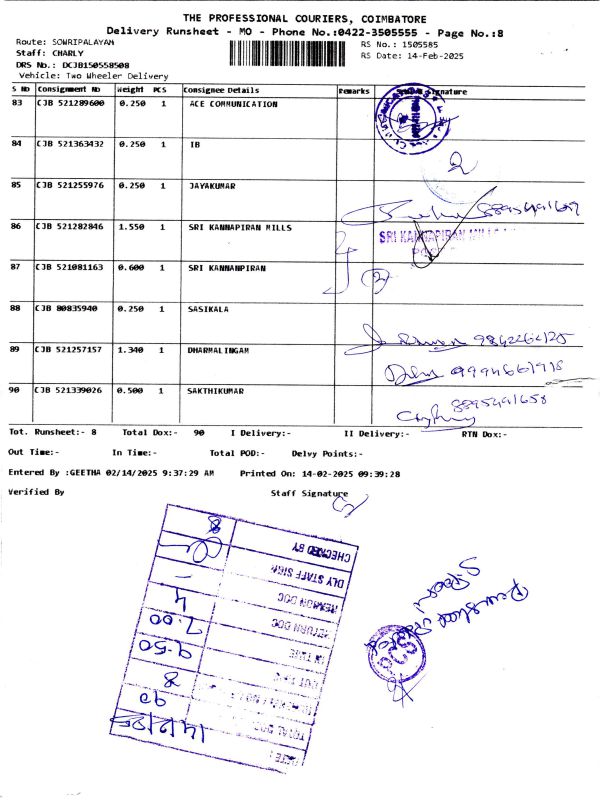 THE PROFESSIONAL COURIERS, COIMBATORE
Delivery Runsheet - MO - Phone No.:0422-3505555 - Page No.:8
Route: SOWRIPALAYAM
RS No.: 1505585
Staff: CHARLY
RS Date: 14-Feb-2025
DRS No.: DCJB150558508
Vehicle: Two Wheeler Delivery
S No Consignment No Weight PCS Consignee Details Remarks Signature
83 CJB 521289600 0.250 1 ACE COMMUNICATION
84 CJB 521363432 0.250 1 IB
85 CJB 521255976 0.250 1 JAYAKUMAR
86 CJB 521282846 1.550 1 SRI KANNAPIRAN MILLS
SRI KANNAPIRAN MILLS
87 CJB 521081163 0.600 1 SRI KANNANPIRAN
2
88 CJB 80835940 0.250 1 SASIKALA
9842264125
89 CJB 521257157 1.340 1 DHARMALINGAM
9994661918
90 CJB 521339026 0.500 1 SAKTHIKUMAR
8895491658
Tot. Runsheet:- 8 Total Dox:- 90 I Delivery:- II Delivery:- RTN Dox:-
Out Time:- In Time:- Total POD:- Delvy Points:-
Entered By :GEETHA 02/14/2025 9:37:29 AM Printed On: 14-02-2025 09:39:28
Verified By Staff Signature
DATE: 14/2/25
TOTAL DOC 90
8
9.50
IN TIME 7.00
RETURN DOC 4
DLY STAFF SIGN
CHECKED BY